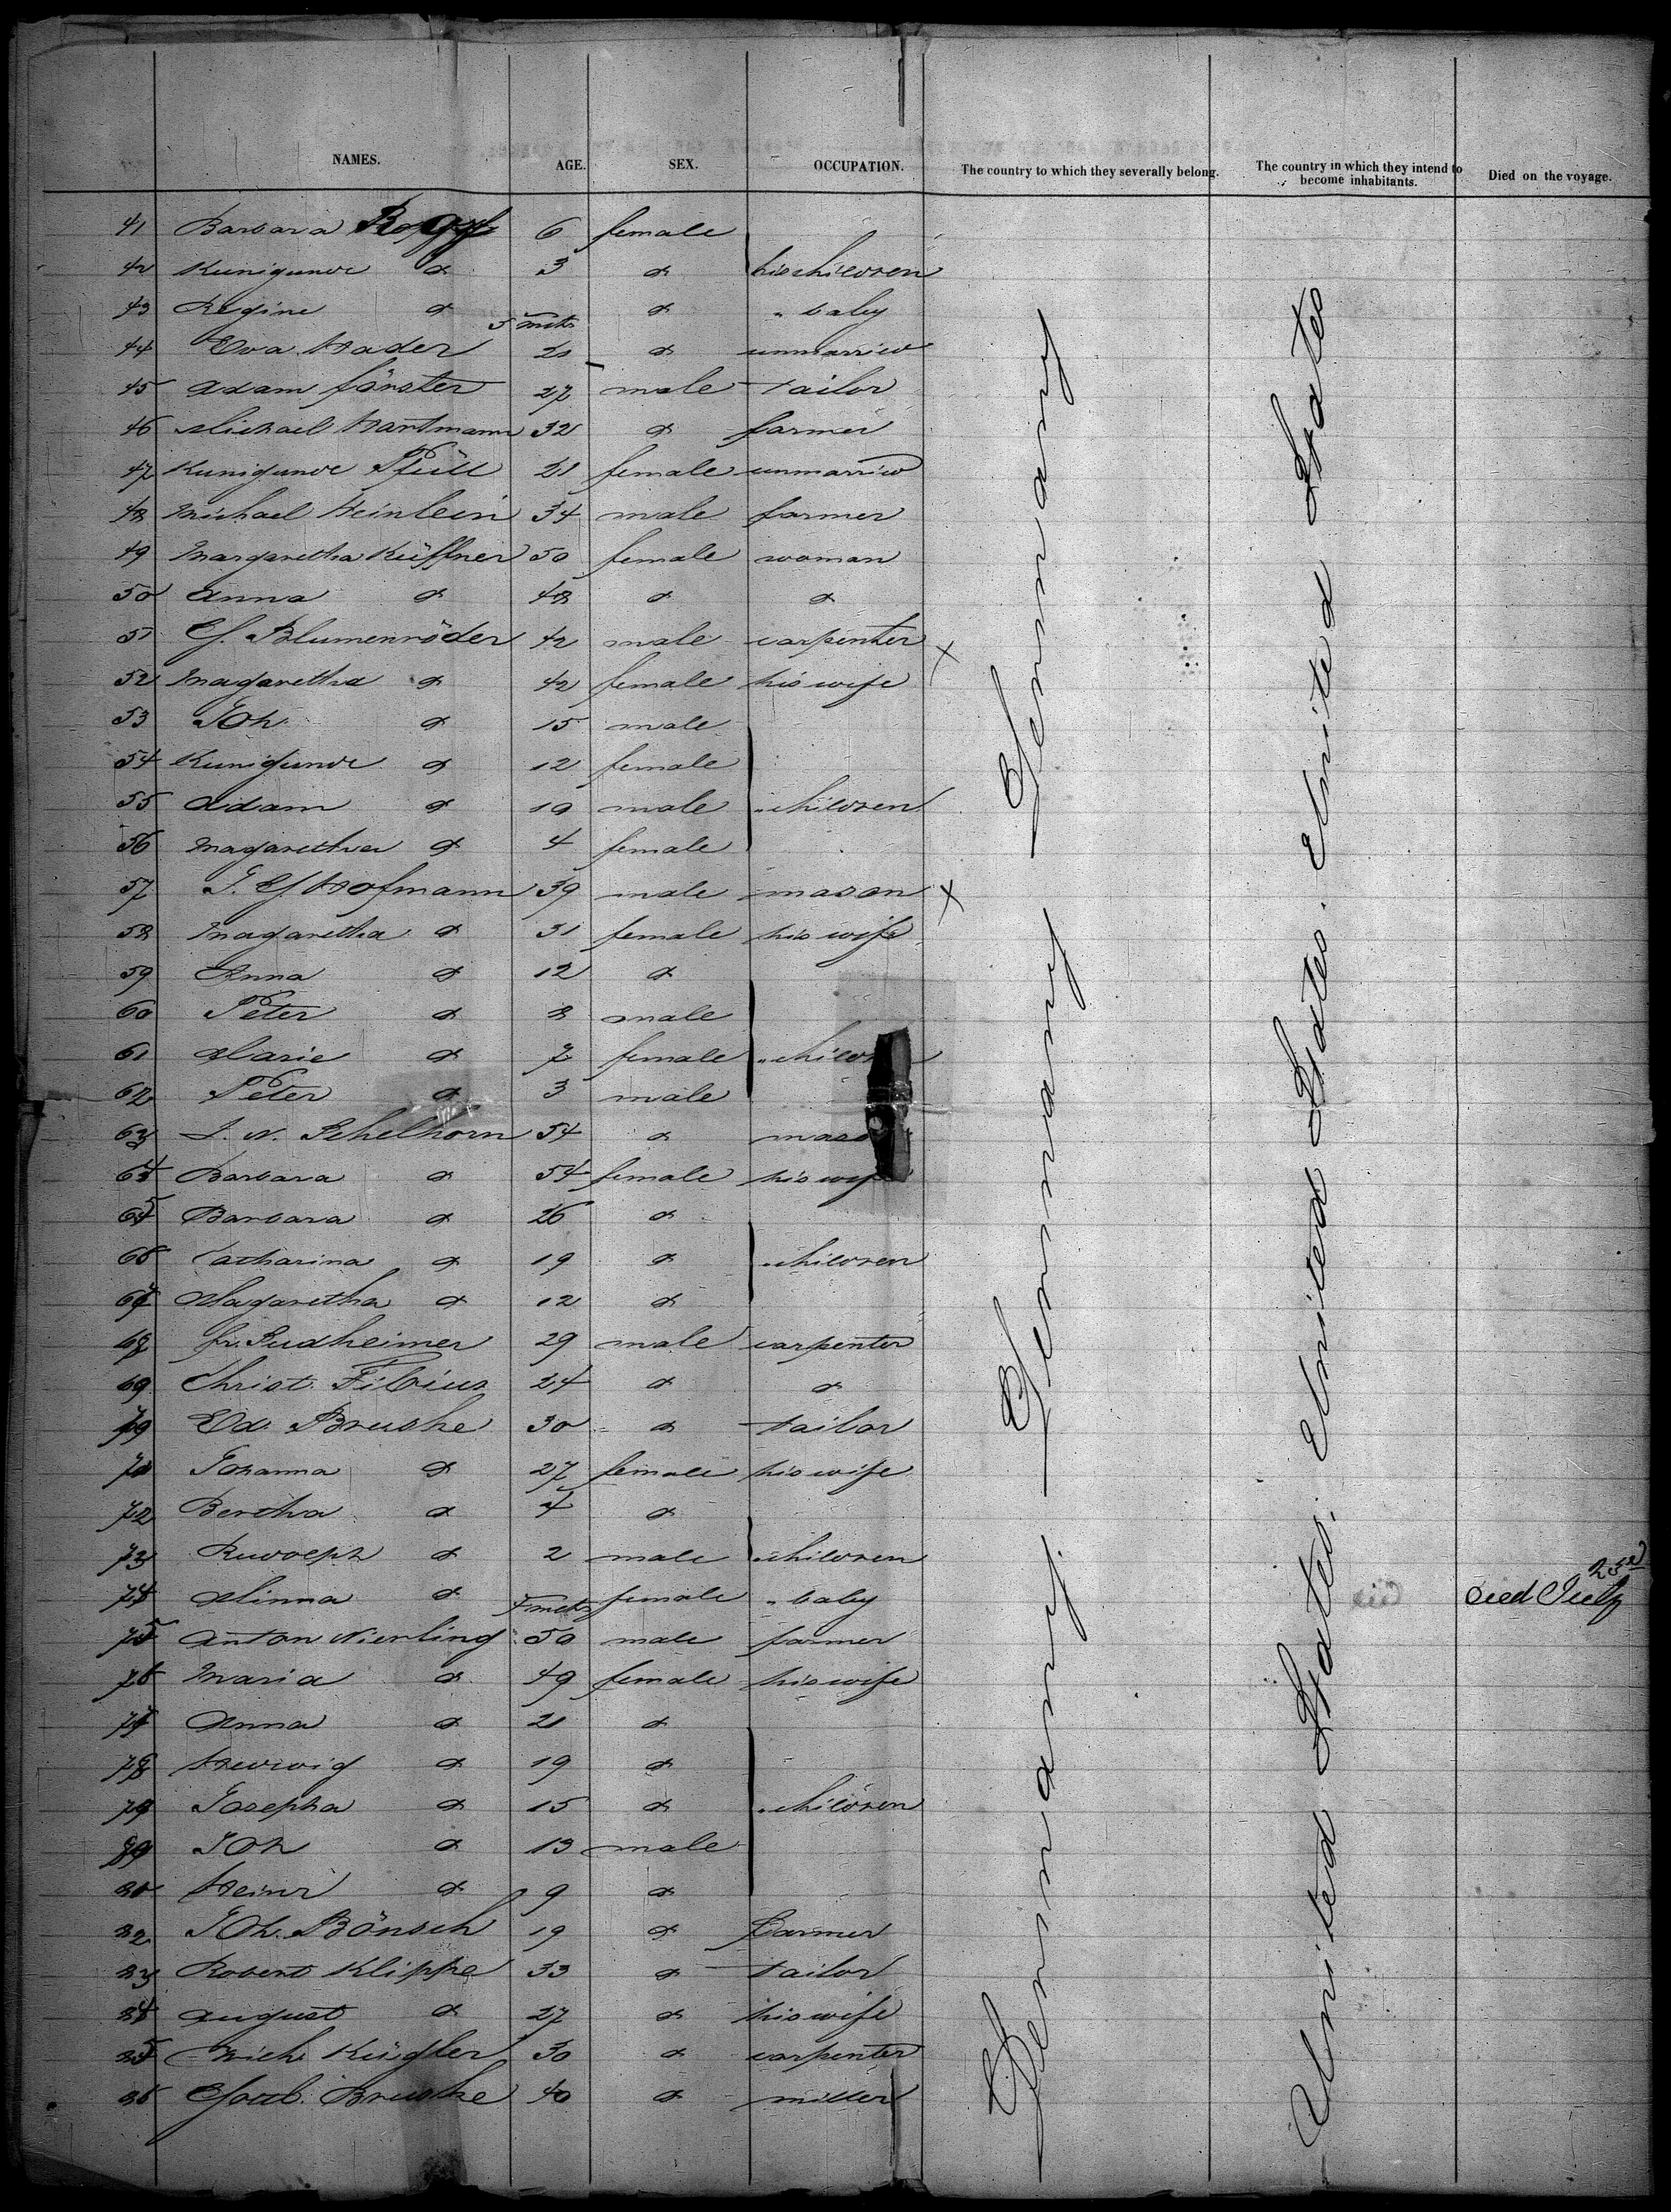 NAMES. AGE. SEX. OCCUPATION. The country to which they severally belong. The country in which they intend to become inhabitants. Died on the voyage.
41 Barbara 6 female
42 Kunigunde d 3 d his children
43 Regine d 5 mths d " baby
44 Eva Hader 21 d unmarried
45 Adam förster 27 male tailor
46 Michael Hartmann 32 d farmer
47 Kunigunde 21 female unmarried
48 Michael Heinlein 34 male farmer
49 Margaretha Küffner 50 female woman
50 Anna d 48 d d
51 G. Blumenröder 42 male carpenter x
52 Magaretha d 42 female his wife
53 Joh d 15 male
54 Kunigunde d 12 female
55 Adam d 10 male " children
56 Magaretha d 4 female
57 J. G. Hofmann 39 male mason x
58 Magaretha d 31 female his wife
59 Anna d 12 d
60 Peter d 8 male
61 Marie d 7 female " childr
62 Peter d 3 male
63 J. N. Schelhorn 54 d maso
64 Barbara d 54 female his wif
65 Barbara d 26 d
66 Catharina d 19 d " children
67 Magaretha d 12 d
68 fr. Sudheimer 29 male carpenter
69 Christ. Filbius 24 d d
70 Ed. Bruske 30 d tailor
71 Johanna d 27 female his wife
72 Bertha d 4 d
73 Rudolph d 2 male " children
74 Minna d mths female " baby died July 23d
75 Anton Nierling 50 male farmer
76 Maria d 49 female his wife
77 Anna d 21 d
78 Hedwig d 19 d
79 Josepha d 15 d " children
80 Joh d 13 male
81 Heinr d 9 d
82 Joh. Bönsch 19 d farmer
83 Robert Klippe 33 d tailor
84 August d 27 d his wife
85 Mich. Kügler 30 d carpenter
86 Gottl. Bruske 40 d miller
Germany Germany Germany Germany
United States. United States. United States